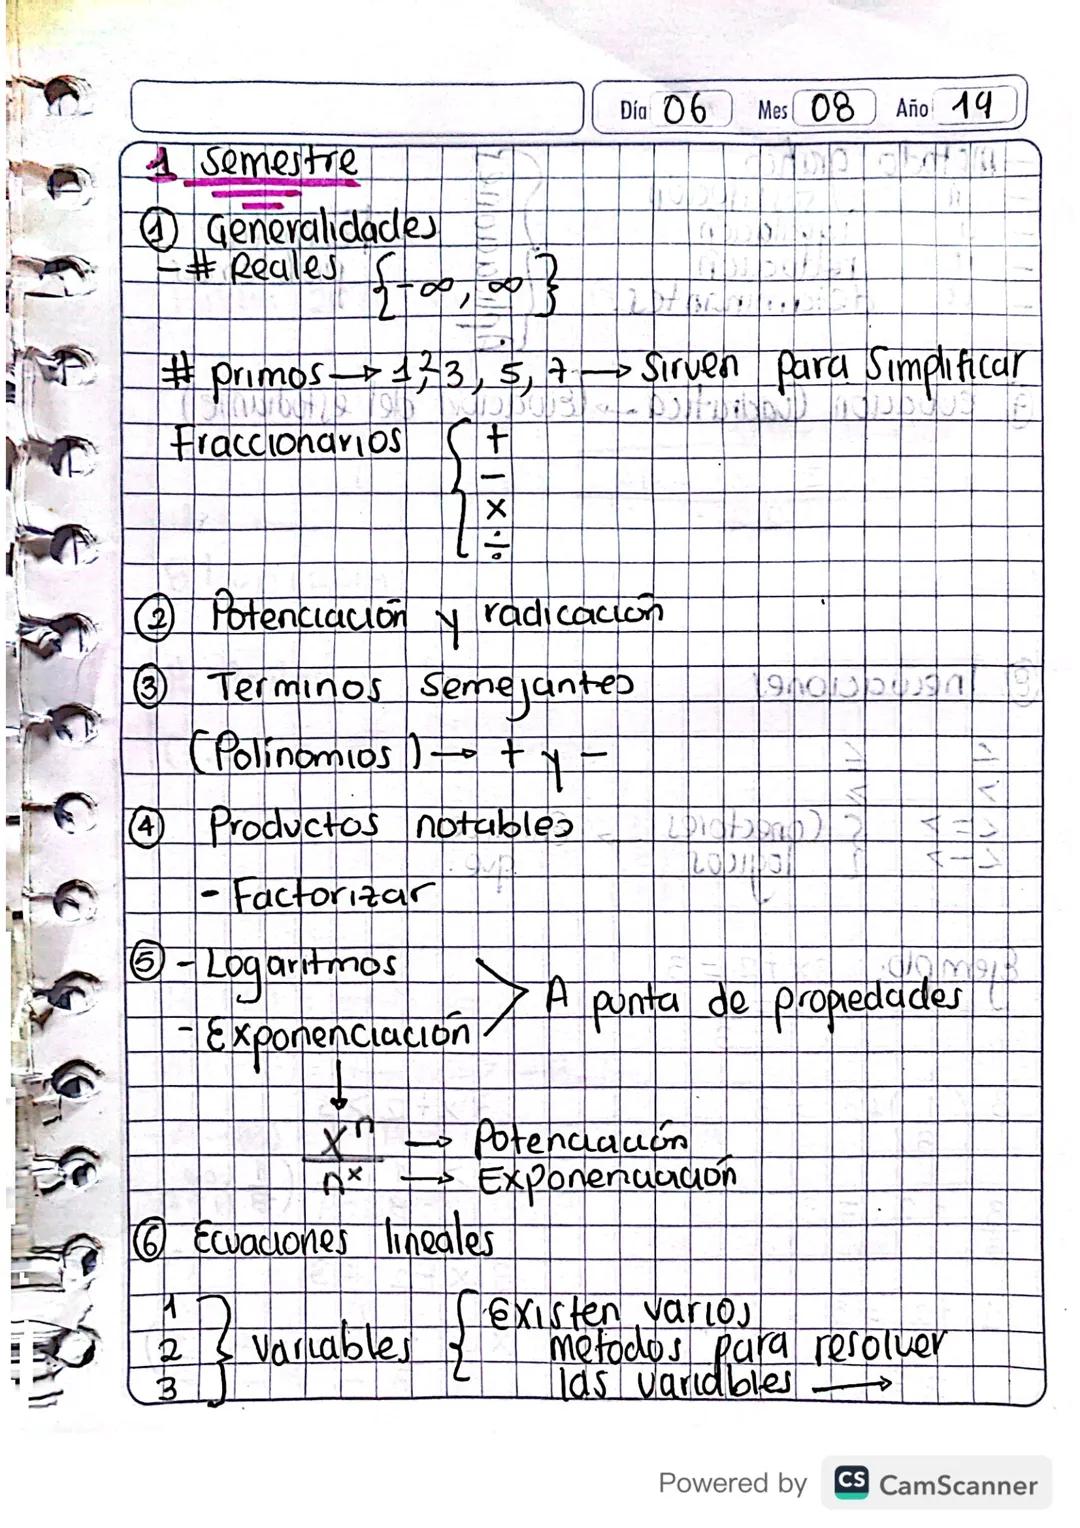 Día 06 Mes 08 Año 19
1 Semestre
① Generalidades
- # Reales {-∞, ∞}
# primos → 1, 2, 3, 5, 7 → Sirven para Simplificar
Fraccionarios { +
-
×
÷
② Potenciación y radicación
③ Terminos Semejantes
(Polinomios) → + y -
④ Productos notables
- Factorizar
⑤ - Logaritmos
- Exponenciación > A punta de propiedades
↓
xⁿ → Potenciación
nˣ → Exponenciación
⑥ Ecuaciones lineales
1
2
3
} variables { existen varios
metodos para resolver
las variables →
Powered by CS CamScanner